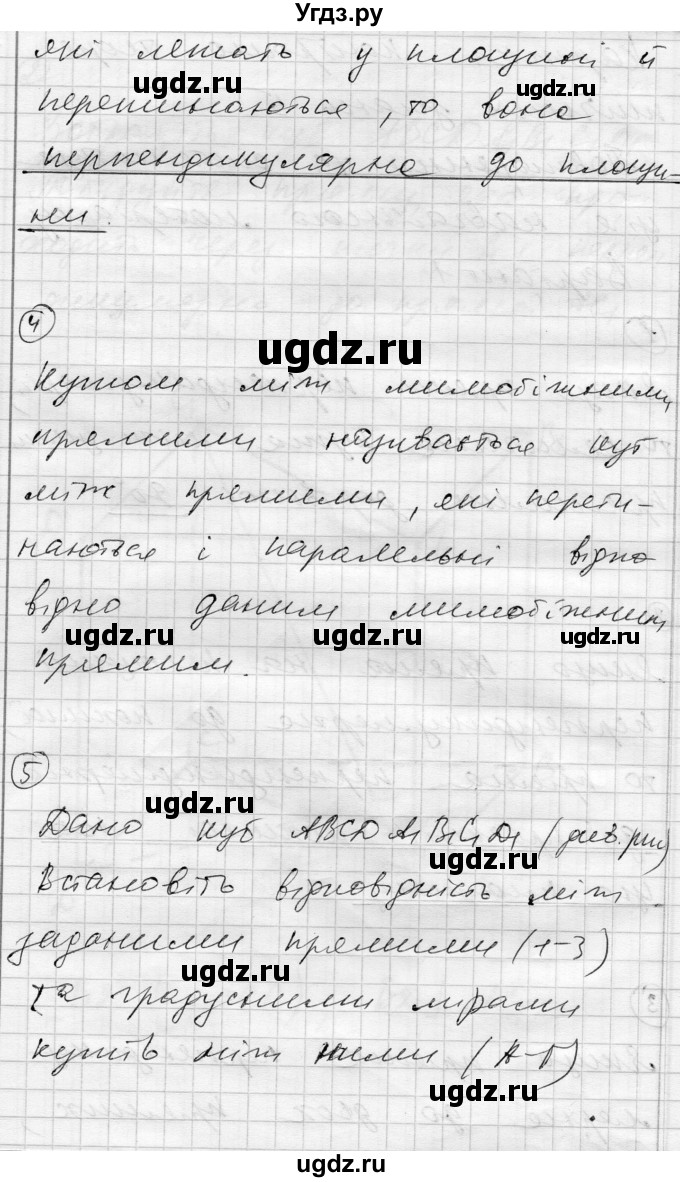 Угдз.ру
які лежать у площині й
перетинаються, то вона
перпендикулярна до площи-
ни.
4
Кутом між мимобіжними
прямими називається кут
між прямими, які перети-
наються і паралельні відпо
відно даним мимобіжним
прямим.
5
Дано куб ABCDA1B1C1D1 (див. рис)
Встановіть відповідність між
заданими прямими (1-3)
та градусними мірами
кутів між ними (А-Г)
ugdz.ru
ugdz.ru
ugdz.ru
ugdz.ru
ugdz.ru
ugdz.ru
ugdz.ru
ugdz.ru
ugdz.ru
ugdz.ru
ugdz.ru
ugdz.ru
ugdz.ru